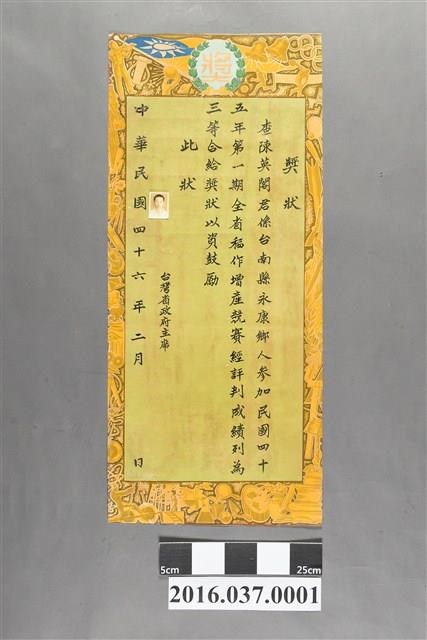 獎
獎狀
查陳英閣君係台南縣永康鄉人參加民國四十
五年第一期全省稻作增產競賽經評判成績列為
三等合給獎狀以資鼓勵
此狀
台灣省政府主席
中華民國四十六年二月　日
5cm
25cm
2016.037.0001